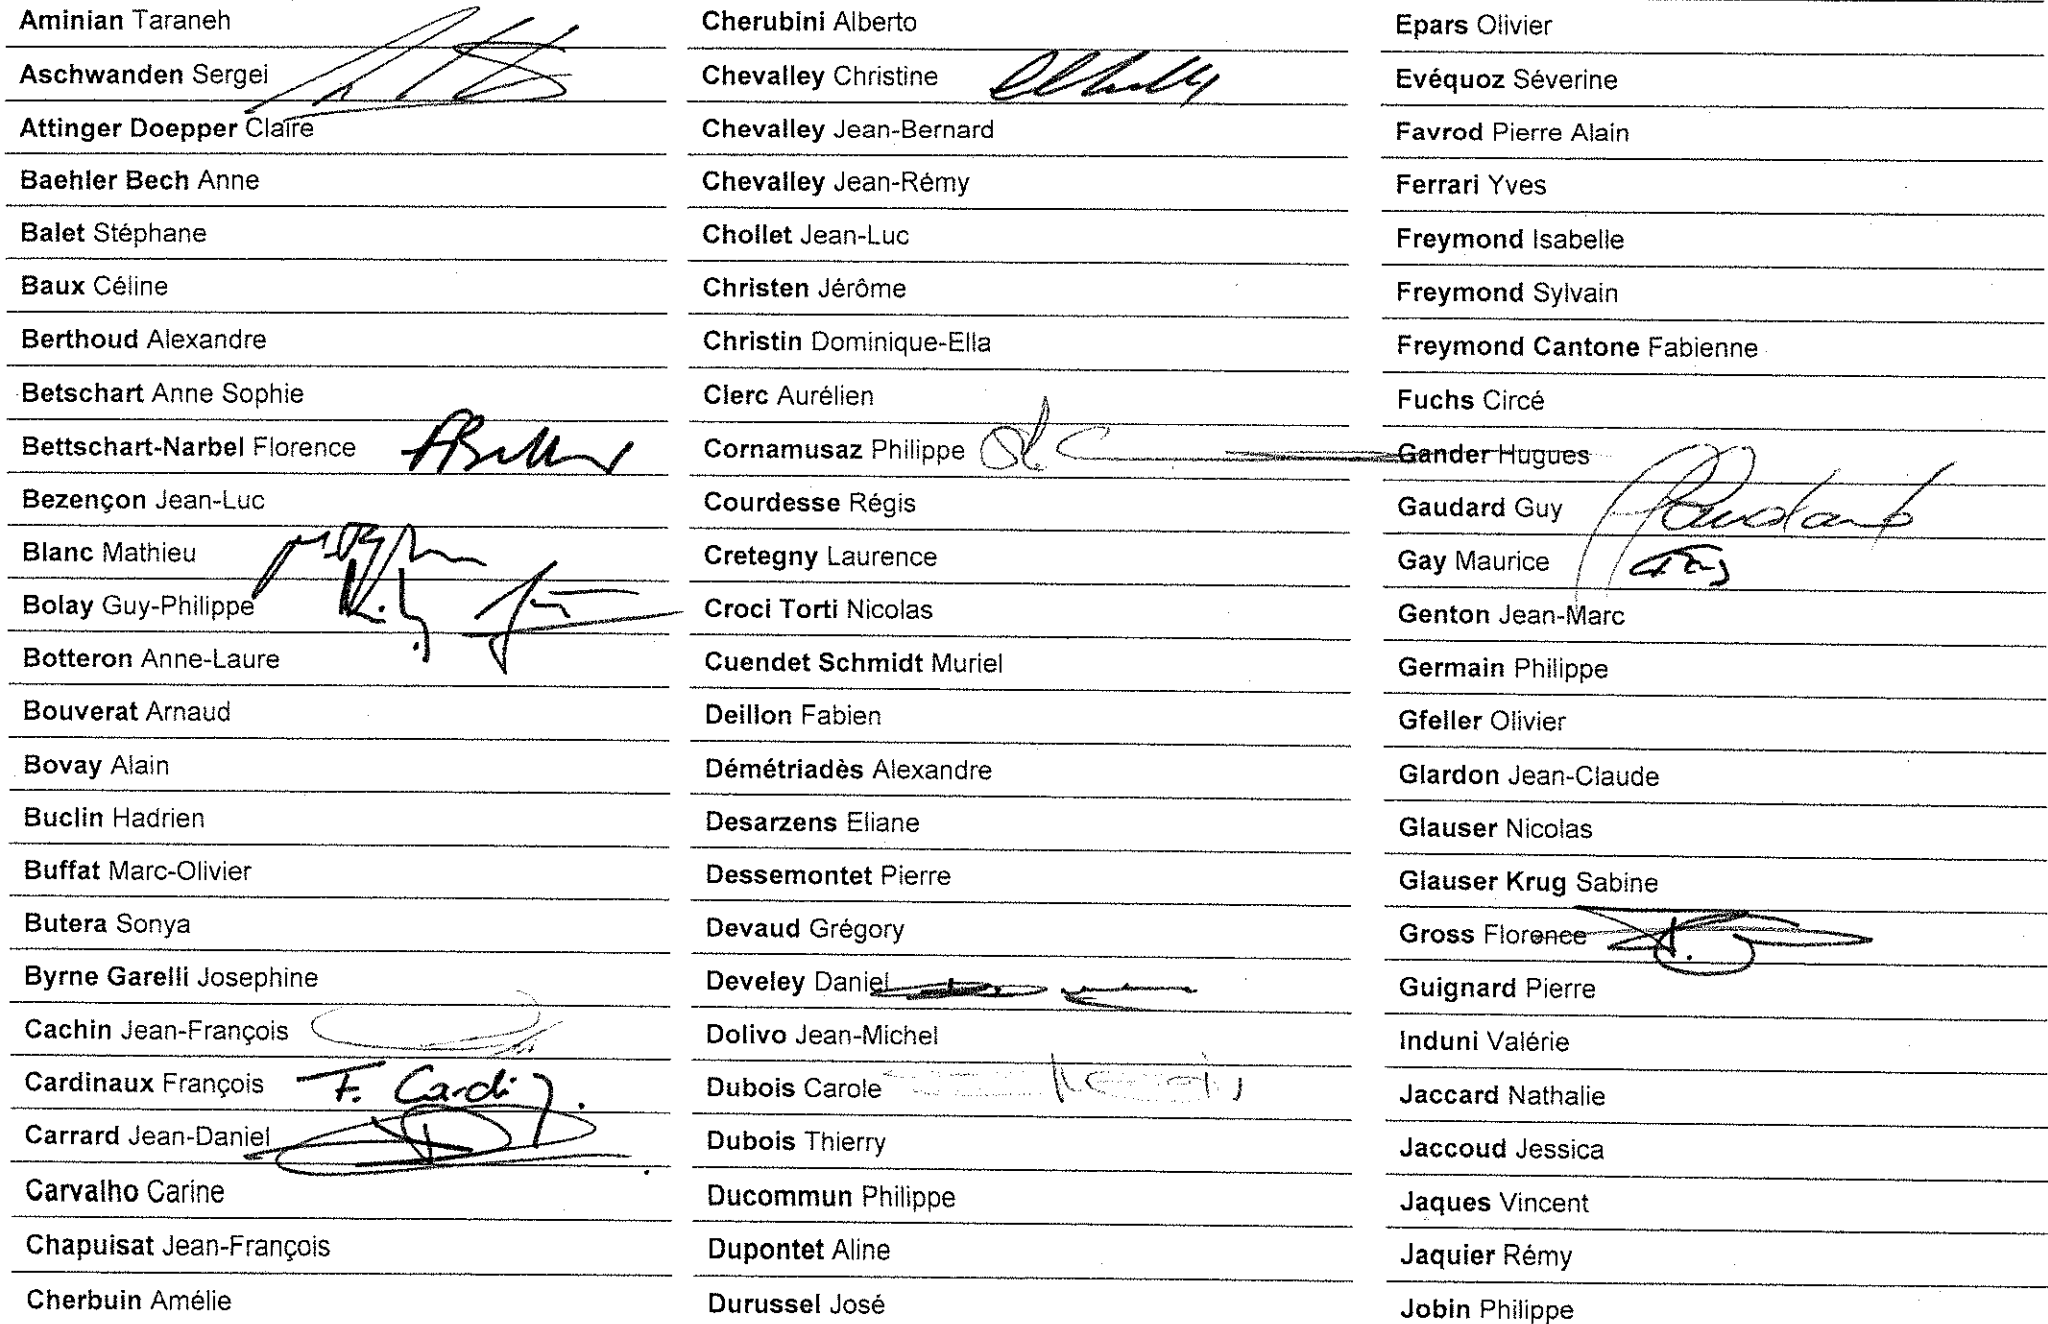 Aminian Taraneh
Aschwanden Sergei
Attinger Doepper Claire
Baehler Bech Anne
Balet Stéphane
Baux Céline
Berthoud Alexandre
Betschart Anne Sophie
Bettschart-Narbel Florence
Bezençon Jean-Luc
Blanc Mathieu
Bolay Guy-Philippe
Botteron Anne-Laure
Bouverat Arnaud
Bovay Alain
Buclin Hadrien
Buffat Marc-Olivier
Butera Sonya
Byrne Garelli Josephine
Cachin Jean-François
Cardinaux François F. Cardi
Carrard Jean-Daniel
Carvalho Carine
Chapuisat Jean-François
Cherbuin Amélie
Cherubini Alberto
Chevalley Christine
Chevalley Jean-Bernard
Chevalley Jean-Rémy
Chollet Jean-Luc
Christen Jérôme
Christin Dominique-Ella
Clerc Aurélien
Cornamusaz Philippe
Courdesse Régis
Cretegny Laurence
Croci Torti Nicolas
Cuendet Schmidt Muriel
Deillon Fabien
Démétriadès Alexandre
Desarzens Eliane
Dessemontet Pierre
Devaud Grégory
Develey Daniel
Dolivo Jean-Michel
Dubois Carole
Dubois Thierry
Ducommun Philippe
Dupontet Aline
Durussel José
Epars Olivier
Evéquoz Séverine
Favrod Pierre Alain
Ferrari Yves
Freymond Isabelle
Freymond Sylvain
Freymond Cantone Fabienne
Fuchs Circé
Gander Hugues
Gaudard Guy Gaudard
Gay Maurice
Genton Jean-Marc
Germain Philippe
Gfeller Olivier
Glardon Jean-Claude
Glauser Nicolas
Glauser Krug Sabine
Gross Florence
Guignard Pierre
Induni Valérie
Jaccard Nathalie
Jaccoud Jessica
Jaques Vincent
Jaquier Rémy
Jobin Philippe